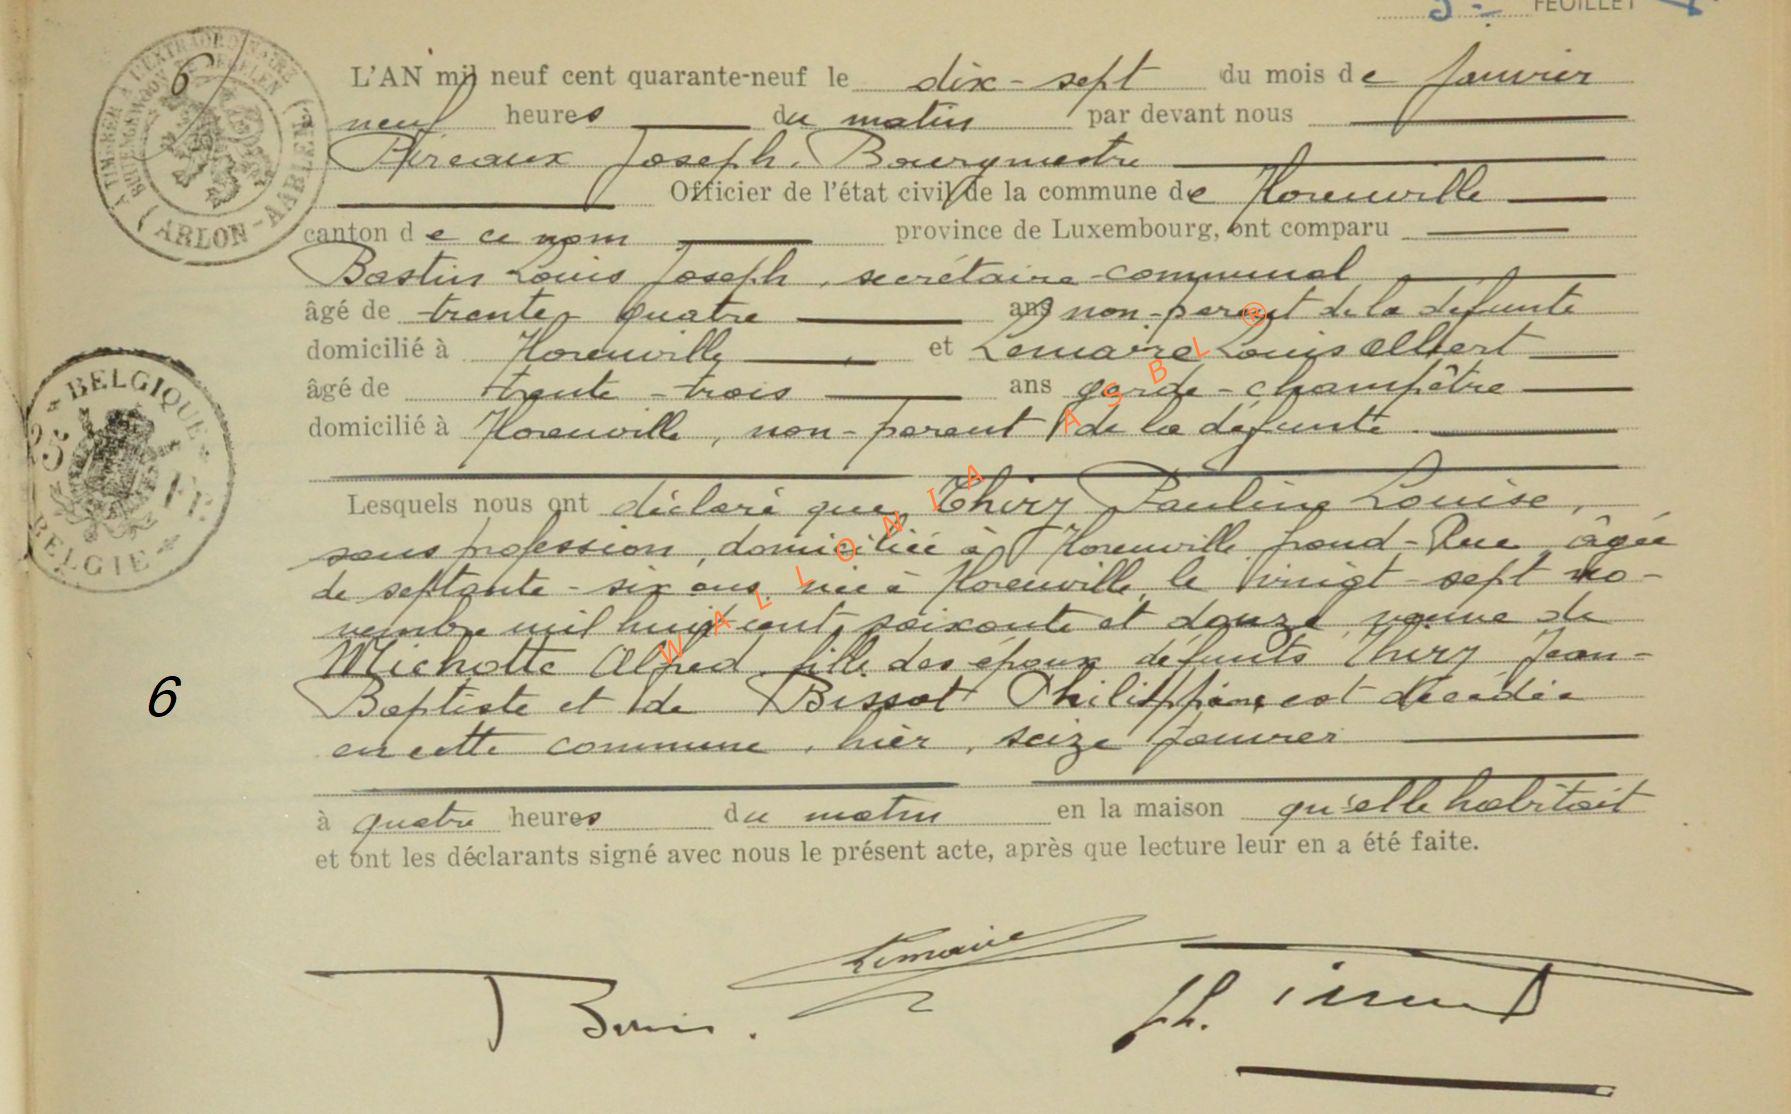 FEUILLET
6
L'AN mil neuf cent quarante-neuf le dix-sept du mois de janvier
neuf heures du matin par devant nous
Joseph, Bourgmestre
Officier de l'état civil de la commune de Florenville
canton de ce nom province de Luxembourg, ont comparu
Bastin Louis Joseph, secrétaire communal
âgé de trente-quatre ans non-parent de la défunte
domicilié à Florenville, et Lemaire Louis Albert
âgé de trente-trois ans garde-champêtre
domicilié à Florenville, non-parent de la défunte.
Lesquels nous ont déclaré que, Thiry Pauline Louise,
sans profession, domiciliée à Florenville, âgée
de septante-six ans, née à Florenville, le vingt-sept no-
vembre mil huit cent soixante et douze, veuve de
Michotte Alfred, fille des époux défunts Thiry Jean-
Baptiste et de Bissot Philippine, est décédée
en cette commune, hier, seize janvier
à quatre heures du matin en la maison qu'elle habitait
et ont les déclarants signé avec nous le présent acte, après que lecture leur en a été faite.
Lemaire
6
WALLONIA ASBL®
BELGIQUE
5 FR
BELGIE
ARLON-AARLEN